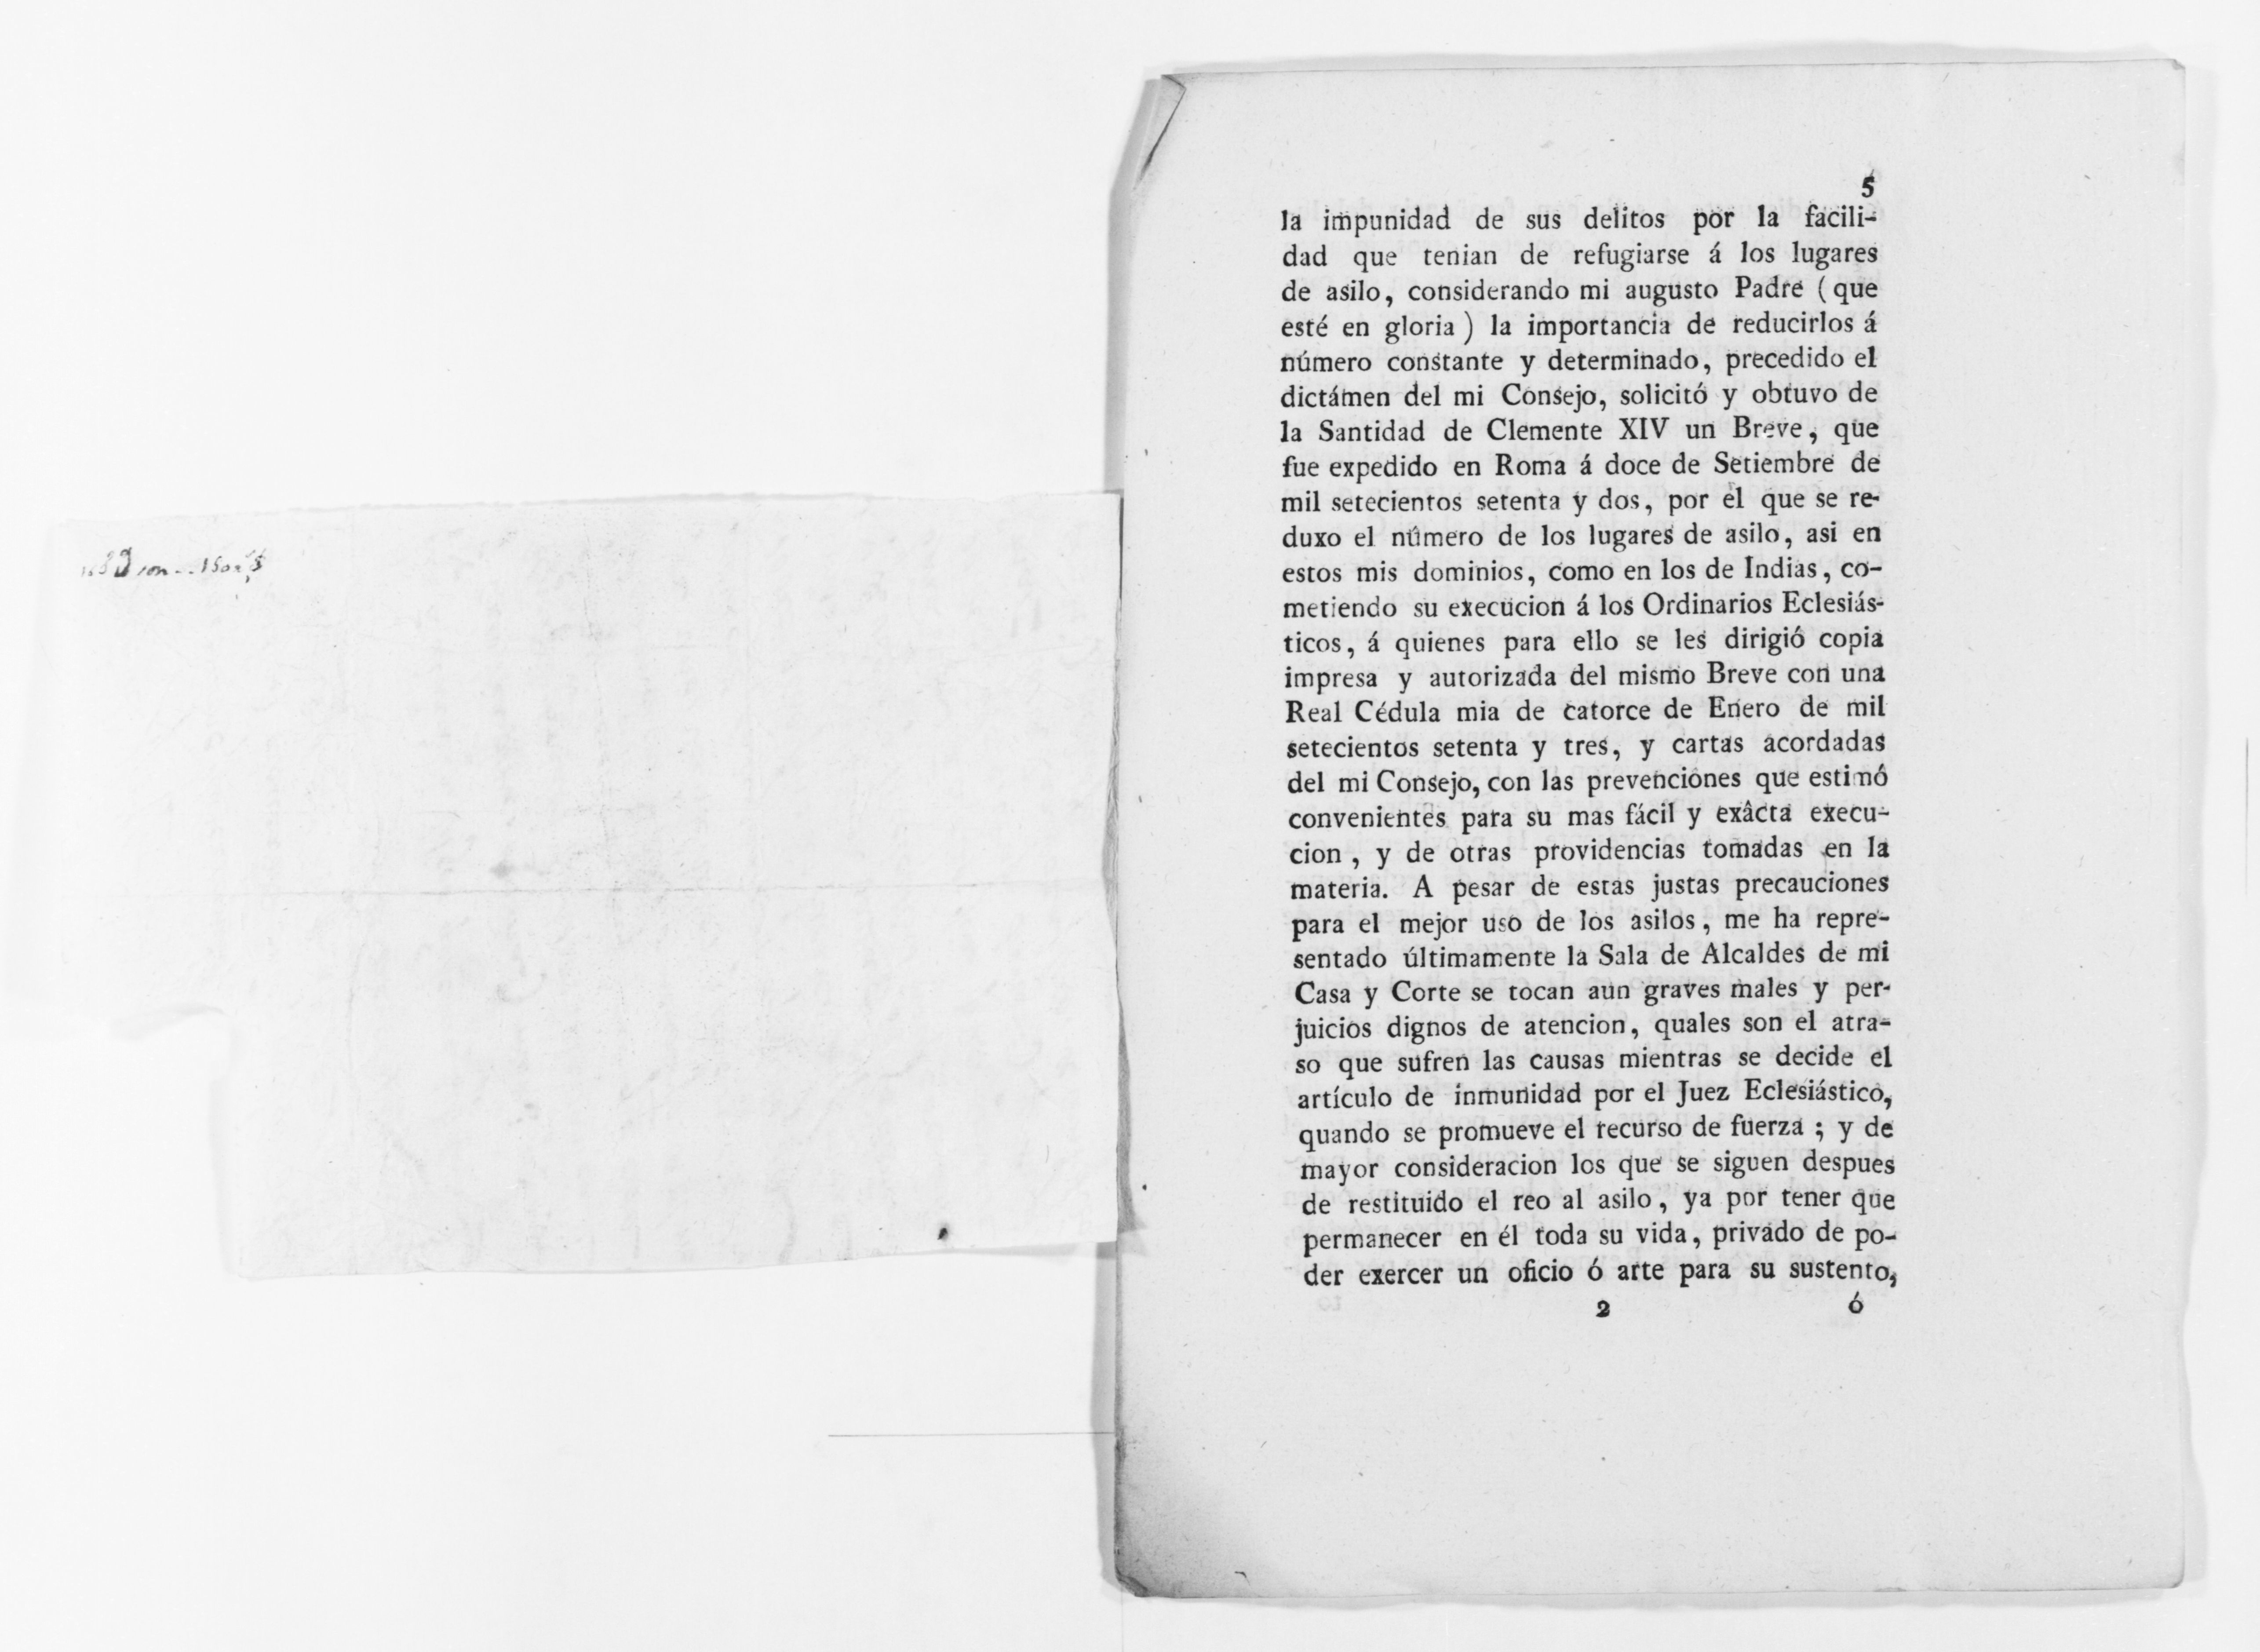 5
la impunidad de sus delitos por la facili-
dad que tenian de refugiarse á los lugares
de asilo, considerando mi augusto Padre (que
esté en gloria) la importancia de reducirlos á
número constante y determinado, precedido el
dictámen del mi Consejo, solicitó y obtuvo de
la Santidad de Clemente XIV un Breve, que
fue expedido en Roma á doce de Setiembre de
mil setecientos setenta y dos, por el que se re-
duxo el número de los lugares de asilo, asi en
estos mis dominios, como en los de Indias, co-
metiendo su execucion á los Ordinarios Eclesiás-
ticos, á quienes para ello se les dirigió copia
impresa y autorizada del mismo Breve con una
Real Cédula mia de catorce de Enero de mil
setecientos setenta y tres, y cartas acordadas
del mi Consejo, con las prevenciones que estimó
convenientes para su mas fácil y exâcta execu-
cion, y de otras providencias tomadas en la
materia. A pesar de estas justas precauciones
para el mejor uso de los asilos, me ha repre-
sentado últimamente la Sala de Alcaldes de mi
Casa y Corte se tocan aun graves males y per-
juicios dignos de atencion, quales son el atra-
so que sufren las causas mientras se decide el
artículo de inmunidad por el Juez Eclesiástico,
quando se promueve el recurso de fuerza; y de
mayor consideracion los que se siguen despues
de restituido el reo al asilo, ya por tener que
permanecer en él toda su vida, privado de po-
der exercer un oficio ó arte para su sustento,
2 ó